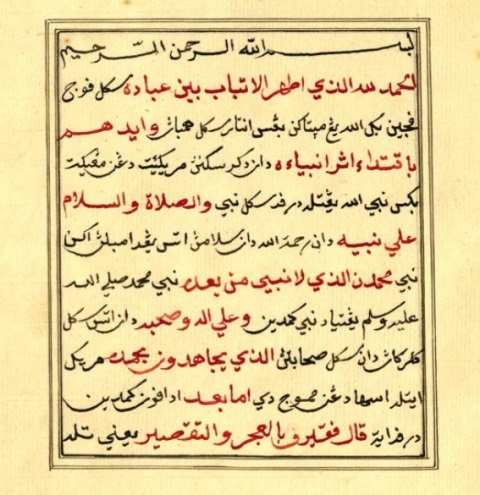 بسم الله الرحمن الرحيم
الحمد لله الذي بين عباده سكل فوج
فجين بكي الله يڠ مپتاكن بڠس انتار سكل همباڽ وايدهم
باقتداء اثر انبياءه دان مريكئيت دڠن مڠيكت
بكس نبي الله يڠتله درفد سكل نبي والصلاة والسلام
علي نبيه دان رحمة الله دان سلامڽ اتس يڠدامبلڽ اكن
نبي محمدن الذي لا نبي من بعده نبي محمد صلي الله
عليه وسلم يڠتياد نبي كمدين وعلي اله وصحبه دان اتس سكل
دان سكل صحابتڽ الذي يجاهدون بجهده
ايتله دڠن دي اما بعد ادافون كمدين
درفد ايت قال فقير وبالعجز والتقصير يعني تله